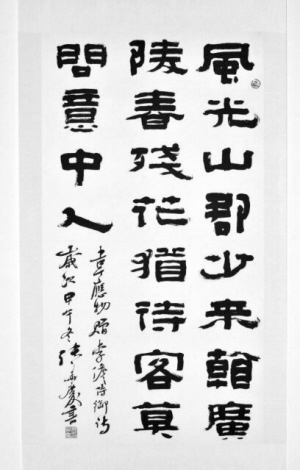 風光山郡少来看廣
陵春殘花猶待客莫
問意中人
韋應物贈李儋侍御詩
歲次甲午冬書